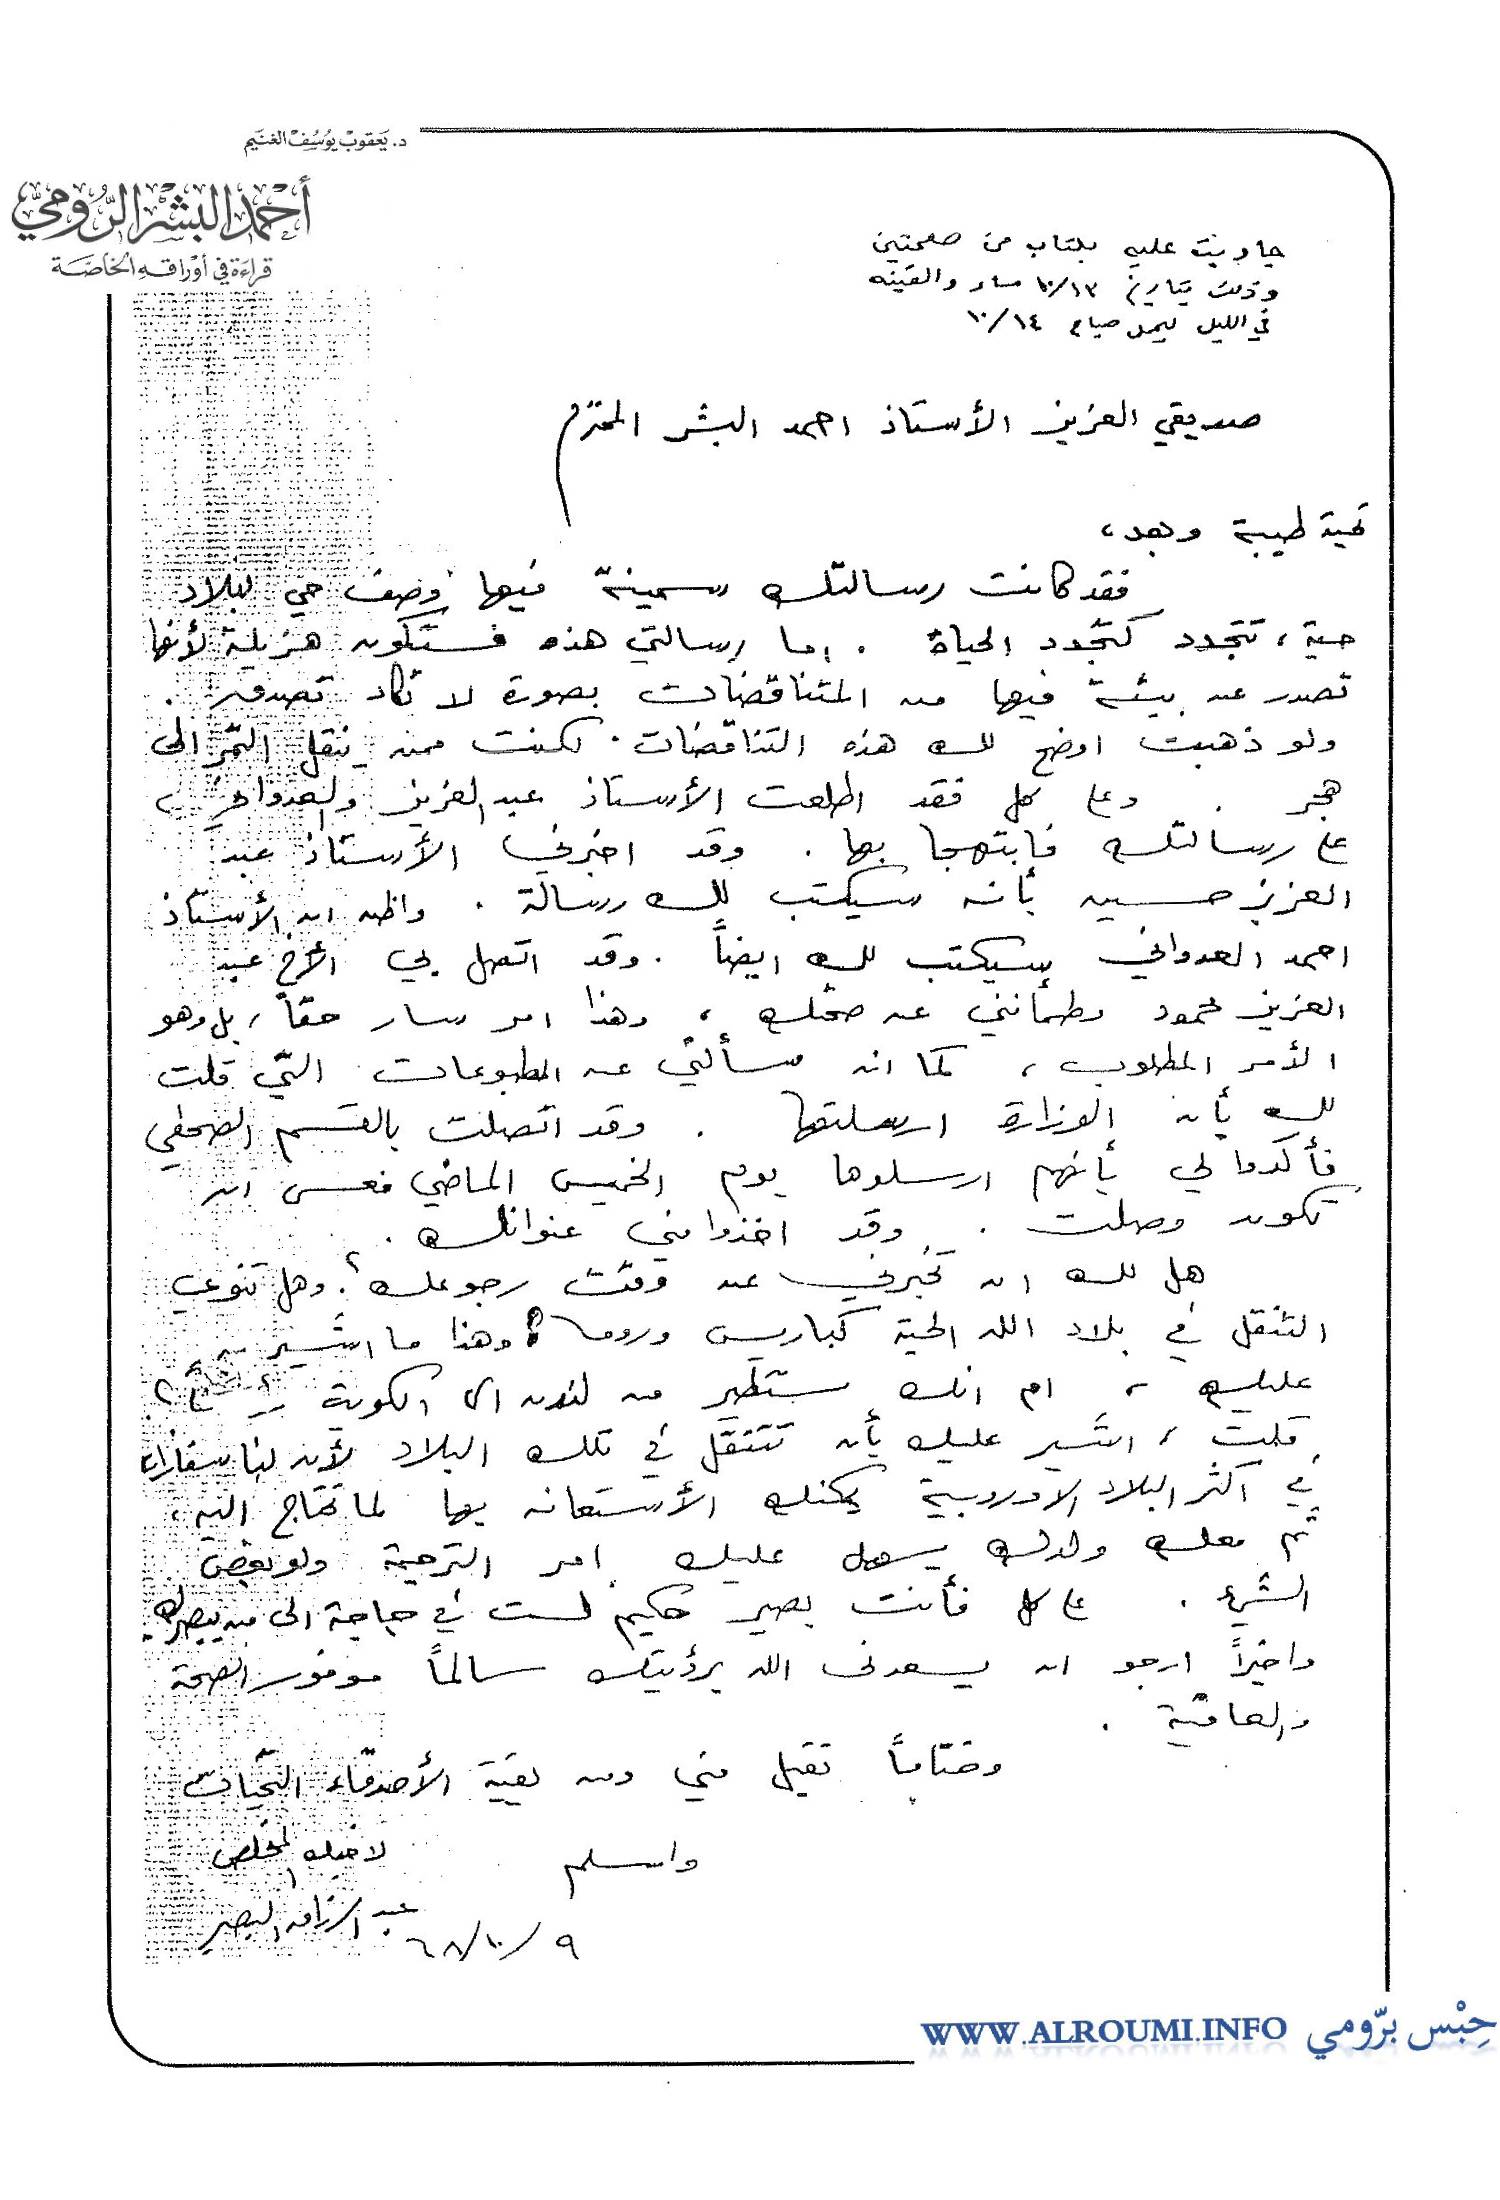 د. يَعقوبْ يوسُفْ الغنَيم
أحمَد البَشر الرّومي
قراءة في أوراقه الخاصّة
جاوبت عليه بكتاب من صفحتين
وذلك بتاريخ ١٠/١٣ مساء والقيته
في الليل ليحمل صباح ١٠/١٤
صديقي العزيز الأستاذ احمد البشر المحترم
تحية طيبة وبعد،
فقد كانت رسالتك سمينة فيها وصف حي لبلاد
حية، تتجدد كتجدد الحياة . اما رسالتي هذه فستكون هزيلة لأنها
تصدر عن بيئة فيها من المتناقضات بصورة لا تكاد تصدق .
ولو ذهبت اوضح لك هذه التناقضات لكنت ممن ينقل التمر الى
هجر . وعلى كل فقد اطلعت الأستاذ عبد العزيز والعدواني
على رسالتك فابتهجا بها . وقد اخبرني الأستاذ عبد
العزيز حسين بأنه سيكتب لك رسالة . واظن ان الأستاذ
احمد العدواني سيكتب لك ايضاً . وقد اتصل بي الأخ عبد
العزيز محمود وطمأنني عن صحتك ، وهذا امر سار حقاً، بل وهو
الأمر المطلوب ، كما انه سألني عن المطبوعات التي قلت
لك بأن الوزارة ارسلتها . وقد اتصلت بالقسم الصحفي
فأكدوا لي بأنهم ارسلوها يوم الخميس الماضي فعسى ان
تكون وصلت . وقد اخذوا مني عنوانك .
هل لك ان تخبرني عن وقت رجوعك ؟. وهل تنوي
التنقل في بلاد الله الحية كباريس وروما ؟ وهذا ما اشير به
عليك ، ام انك ستطير من لندن الى الكويت ؟
قلت ، اشير عليك بأن تتنقل في تلك البلاد لأن لنا سفارات
في اكثر البلاد الاوروبية يمكنك الأستعانه بها لما تحتاج اليه،
ثم معك ولدك يسهل عليك امر الترجمة ولو بعض
الشيء . على كل فأنت بصير حكيم لست في حاجة الى من يبصرك.
واخيراً ارجو ان يسعدني الله برؤيتك سالماً موفور الصحة
والعافية .
وختاماً تقبل مني ومن بقية الأصدقاء التحيات
واسلم لاخيك المخلص
عبد الرزاق البصير
٦٨/١٠/٩
WWW.ALROUMI.INFO حِبْس برّومي